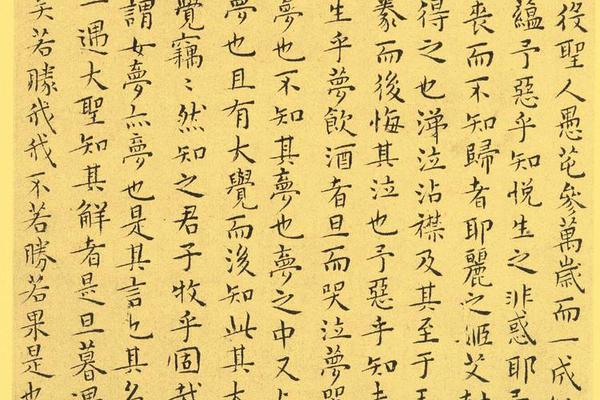 役聖人愚芚參萬歲而一成
蘊予惡乎知悅生之非惑耶
喪而不知歸者耶麗之姬艾
得之也涕泣沾襟及其至于王
豢而後悔其泣也予惡乎知夫
生乎夢飲酒者旦而哭泣夢哭
夢也不知其夢也夢之中又占
夢也且有大覺而後知此其大
覺竊〻然知之君子牧乎個哉
謂女夢亦夢也是其言也其名
一遇大聖知其解者是旦暮遇
矣若勝我我不若勝若果是也